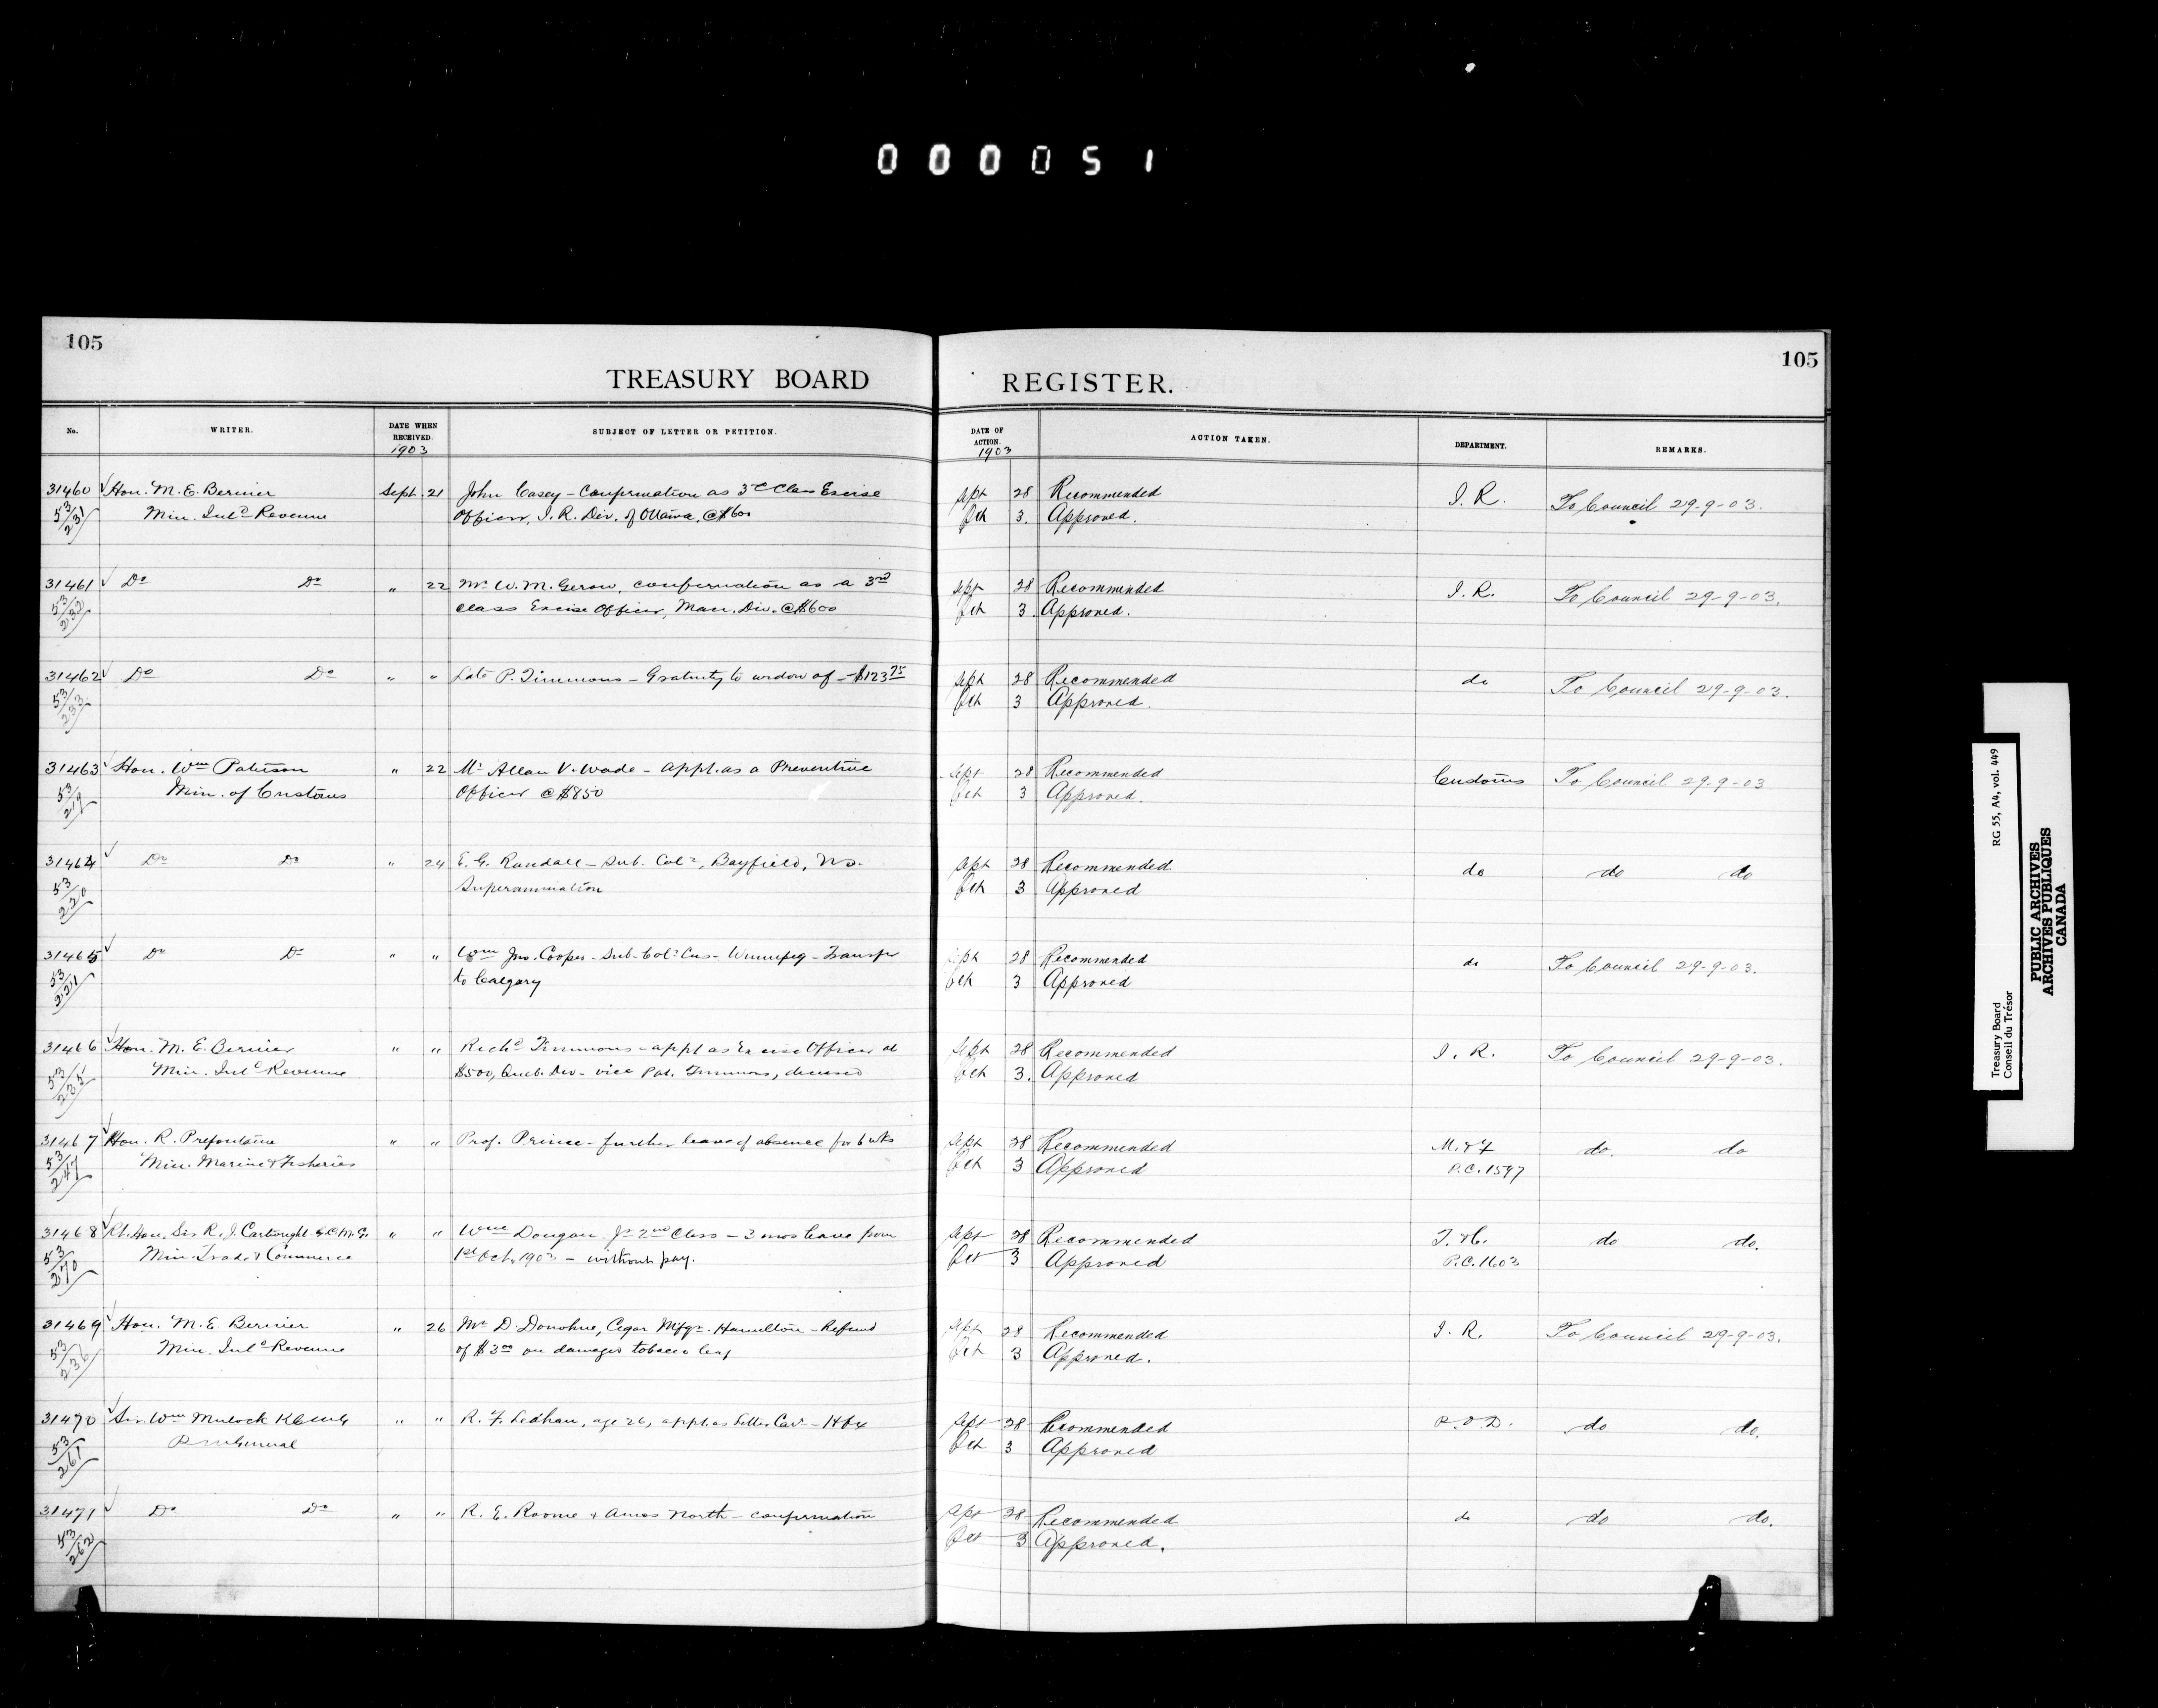 000051
105
105
TREASURY BOARD REGISTER.
No. WRITER. DATE WHEN RECEIVED. SUBJECT OF LETTER OR PETITION. DATE OF ACTION. ACTION TAKEN. DEPARTMENT. REMARKS.
1903 1903
31460 Hon. M. E. Bernier Sept. 21 John Casey - Confirmation as 3rd Class Excise Sept 28 Recommended I. R. To Council 29-9-03.
53/231 Min. Inld Revenue Officer, I. R. Div. of Ottawa, @ $600 Oct 3. Approved.
31461 Do Do " 22 Mr. W. M. Gerow, confirmation as a 3rd Sept 28 Recommended I. R. To Council 29-9-03.
53/232 class Excise Officer, Man. Div. @ $600 Oct 3. Approved.
31462 Do Do " " Late P. Timmons - Gratuity to widow of - $123.75 Sept 28 Recommended do To Council 29-9-03.
53/233 Oct 3 Approved.
31463 Hon. Wm Paterson " 22 Mr Allan V. Wade - appt. as a Preventive Sept 28 Recommended Customs To Council 29-9-03
53/219 Min. of Customs Officer @ $850 Oct 3 Approved.
31464 Do Do " 24 E. G. Randall - Sub. Colr, Bayfield, N.S. Sept 28 Recommended do do do
53/220 Superannuation Oct 3 Approved
31465 Do Do " " Wm Jno. Cooper - Sub-Colr Cus - Winnipeg - Transfer Sept 28 Recommended do To Council 29-9-03.
53/221 to Calgary Oct 3 Approved
31466 Hon. M. E. Bernier " " Richd Timmons - appt as Excise Officer at Sept 28 Recommended I. R. To Council 29-9-03.
53/235 Min. Inld Revenue $500, Queb. Div - vice Pat. Timmons, deceased Oct 3. Approved
31467 Hon. R. Prefontaine " " Prof. Prince - further leave of absence for 6 wks Sept 28 Recommended M. & F do. do
53/247 Min. Marine & Fisheries Oct 3 Approved P.C. 1597
31468 Rt. Hon. Sir R. J. Cartwright G.C.M.G. " " Wm Dougan, Jr 2nd Class - 3 mos leave from Sept 28 Recommended T. & C. do do.
53/270 Min. Trade & Commerce 1st Oct. 1903 - without pay. Oct 3 Approved P.C. 1603
31469 Hon. M. E. Bernier " 26 Mr D. Donohue, Cigar Mfgr. Hamilton - Refund Sept 28 Recommended I. R. To Council 29-9-03.
53/236 Min. Inld Revenue of $3.00 on damaged tobacco leaf Oct 3 Approved.
31470 Sir Wm Mulock KCMG " " R. F. age 26, appt. as Letter Carr - Hfx Sept 28 Recommended P. O. D. do do.
53/261 Oct 3 Approved
31471 Do Do " " R. E. Roome & Amos North - confirmation Sept 28 Recommended do do do.
53/262 Oct 3 Approved.
Treasury Board RG 55, A4, vol. 449
Conseil du Trésor
PUBLIC ARCHIVES
ARCHIVES PUBLIQUES
CANADA